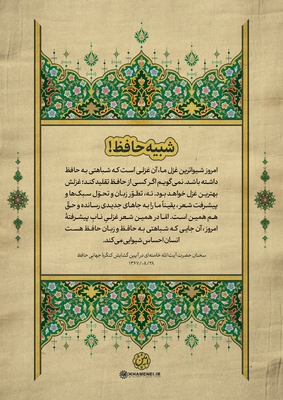 شبیه حافظ!
امروز شیواترین غزل ما، آن غزلی است که شباهتی به حافظ
داشته باشد. نمی‌گویم اگر کسی از حافظ تقلید کند؛ غزلش
بهترین غزل خواهد بود. نه، تطوّر زبان و تحوّل سبک‌ها و
پیشرفت شعر، یقیناً ما را به جاهای جدیدی رسانده و حق
هم همین است. امّا در همین شعر غزلیِ نابِ پیشرفتهٔ
امروز، آن جایی که شباهتی به حافظ و زبان حافظ هست
انسان احساس شیوایی می‌کند.
سخنان حضرت آیت‌الله خامنه‌ای در آیین گشایش کنگرهٔ جهانی حافظ
۱۳۶۷/۰۸/۲۸
KHAMENEI.IR